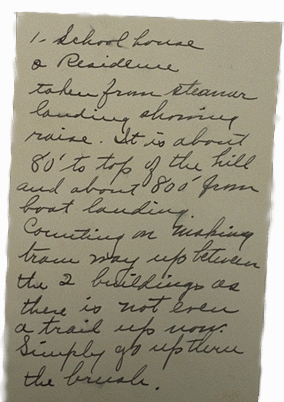 1. School house
& Residence
taken from steamer
landing showing
raise. It is about
80' to top of the hill
and about 800' from
boat landing.
Counting on making
tram way up between
the 2 buildings as
there is not even
a trail up now.
Simply go up thru
the brush.